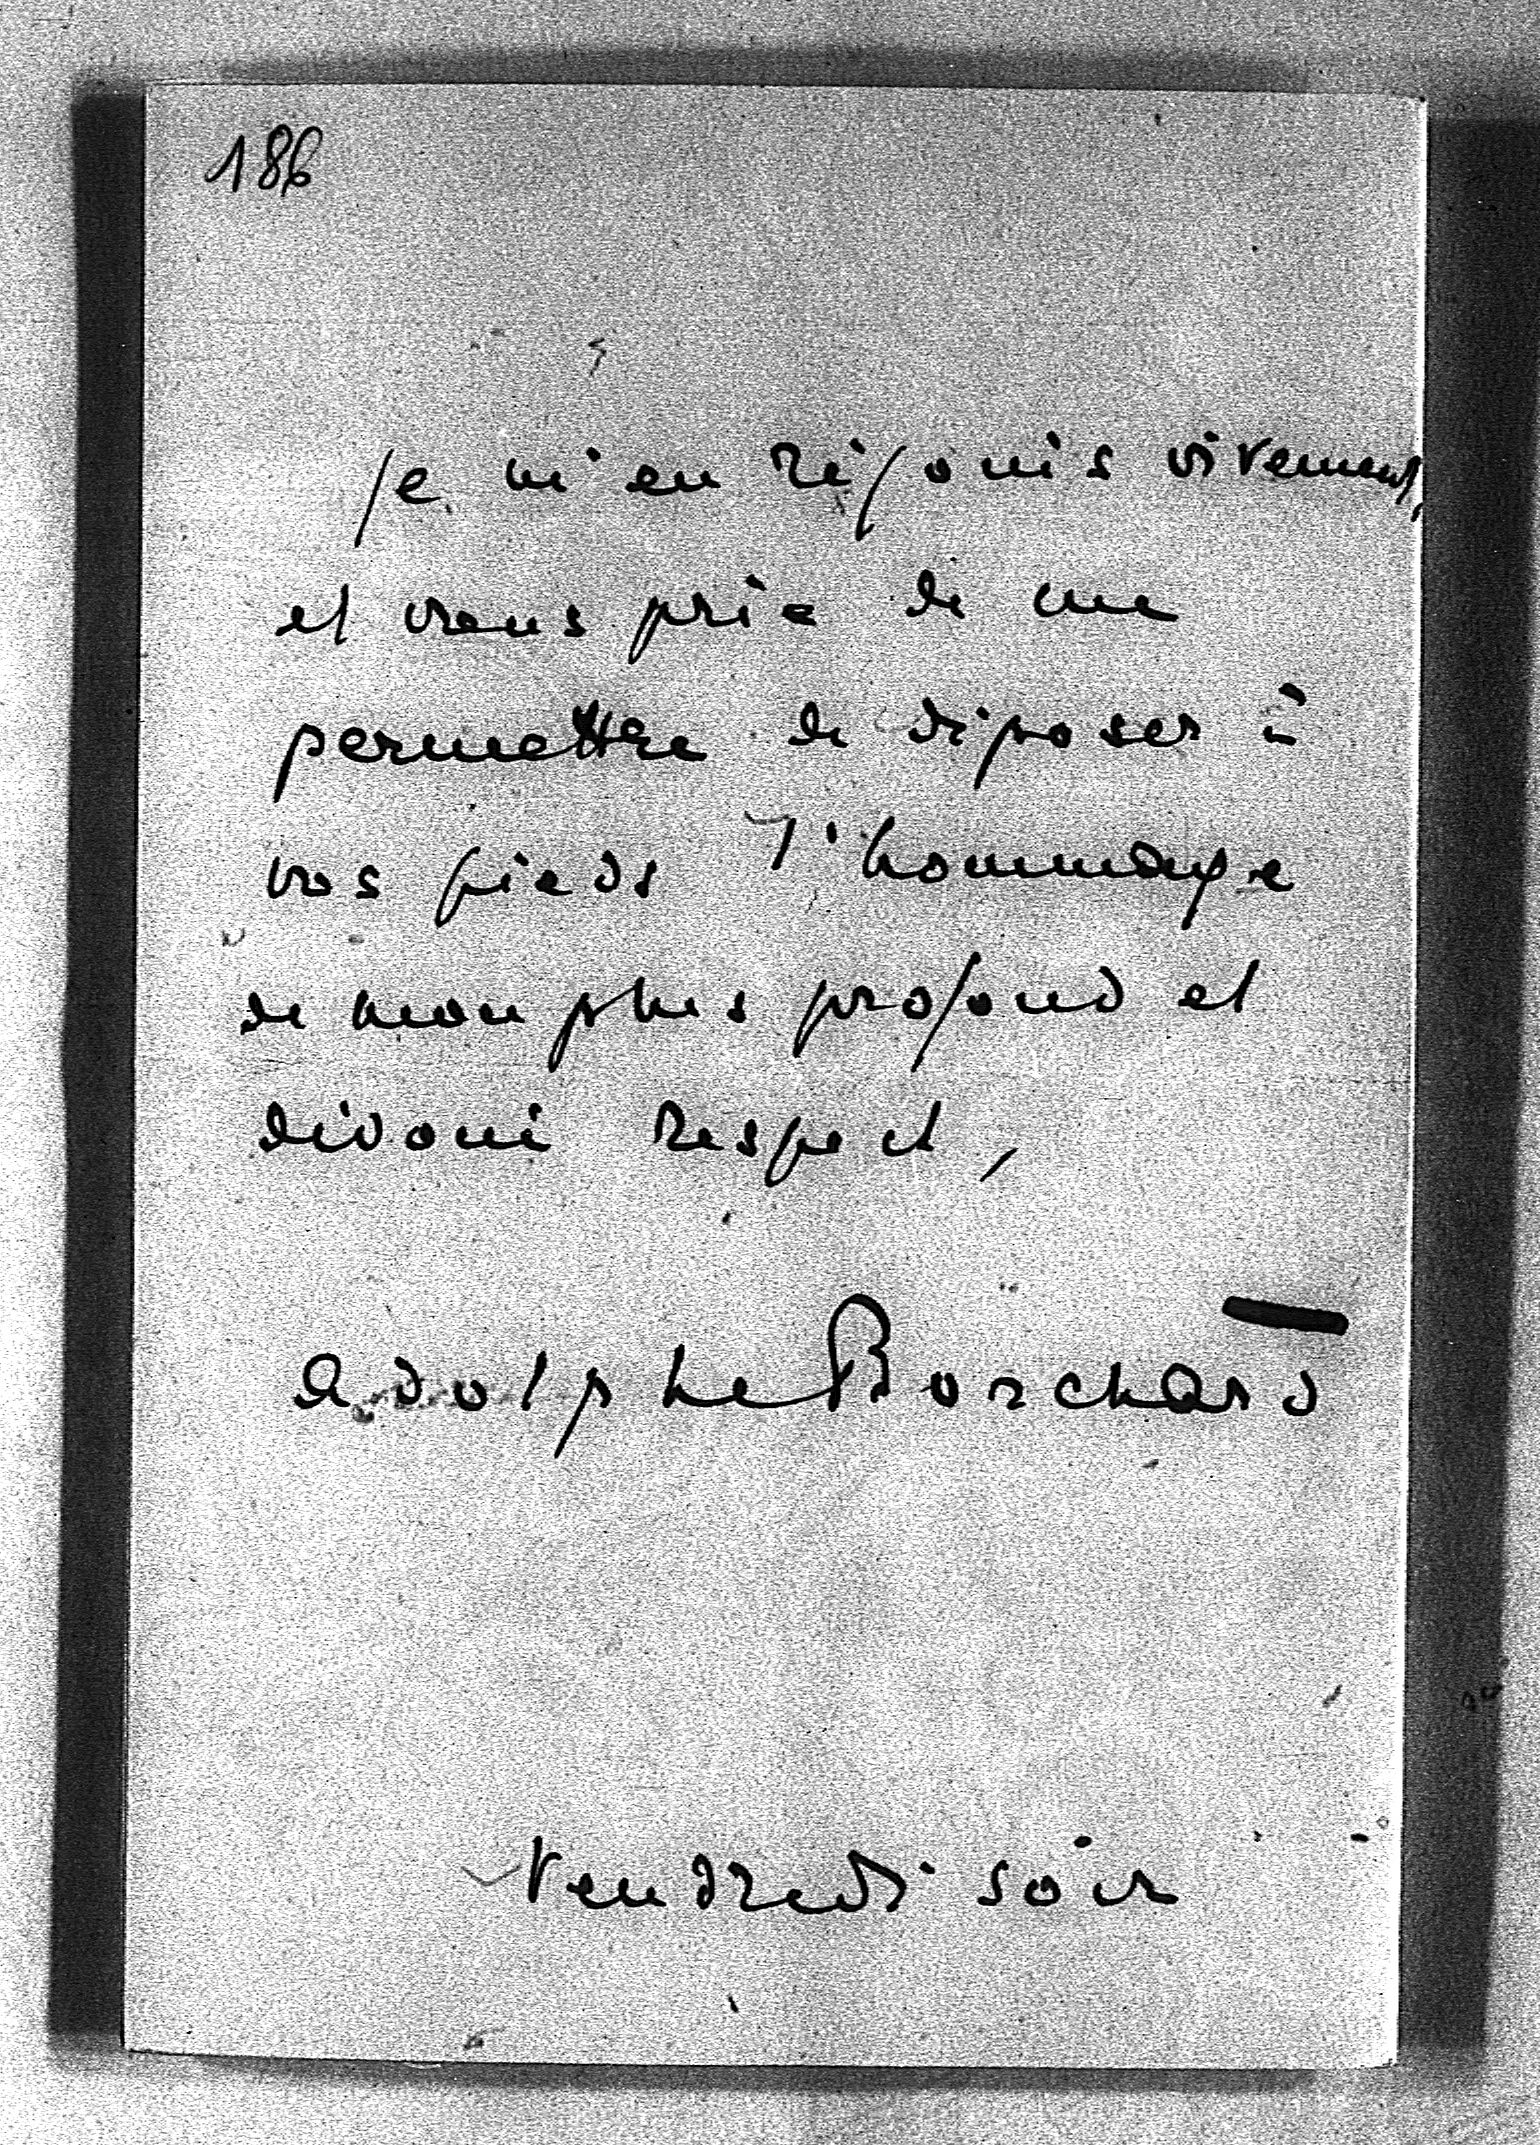 186
je m'en réjouis vivement,
et vous prie de me
permettre de déposer à
vos pieds l'hommage
de mon plus profond et
dévoué respect,
Adolphe Borchard
Vendredi soir